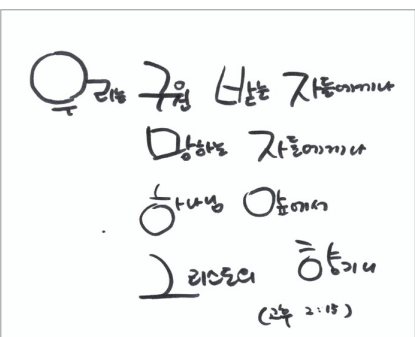 우리는 구원 받는 자들에게나
망하는 자들에게나
하나님 앞에서
그리스도의 향기니
(고후 2:15)